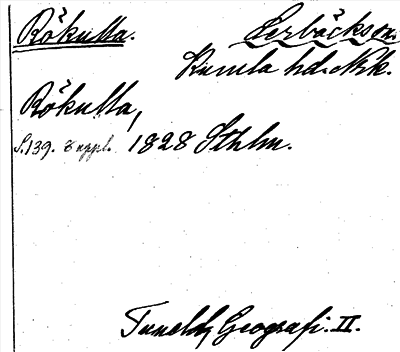 Rökulla. Lerbäcks sn.
Kumla hd. Nrk.
Rökulla,
S. 139. 8 uppl. 1828 Sthlm.
Tunelds Geografi. II.